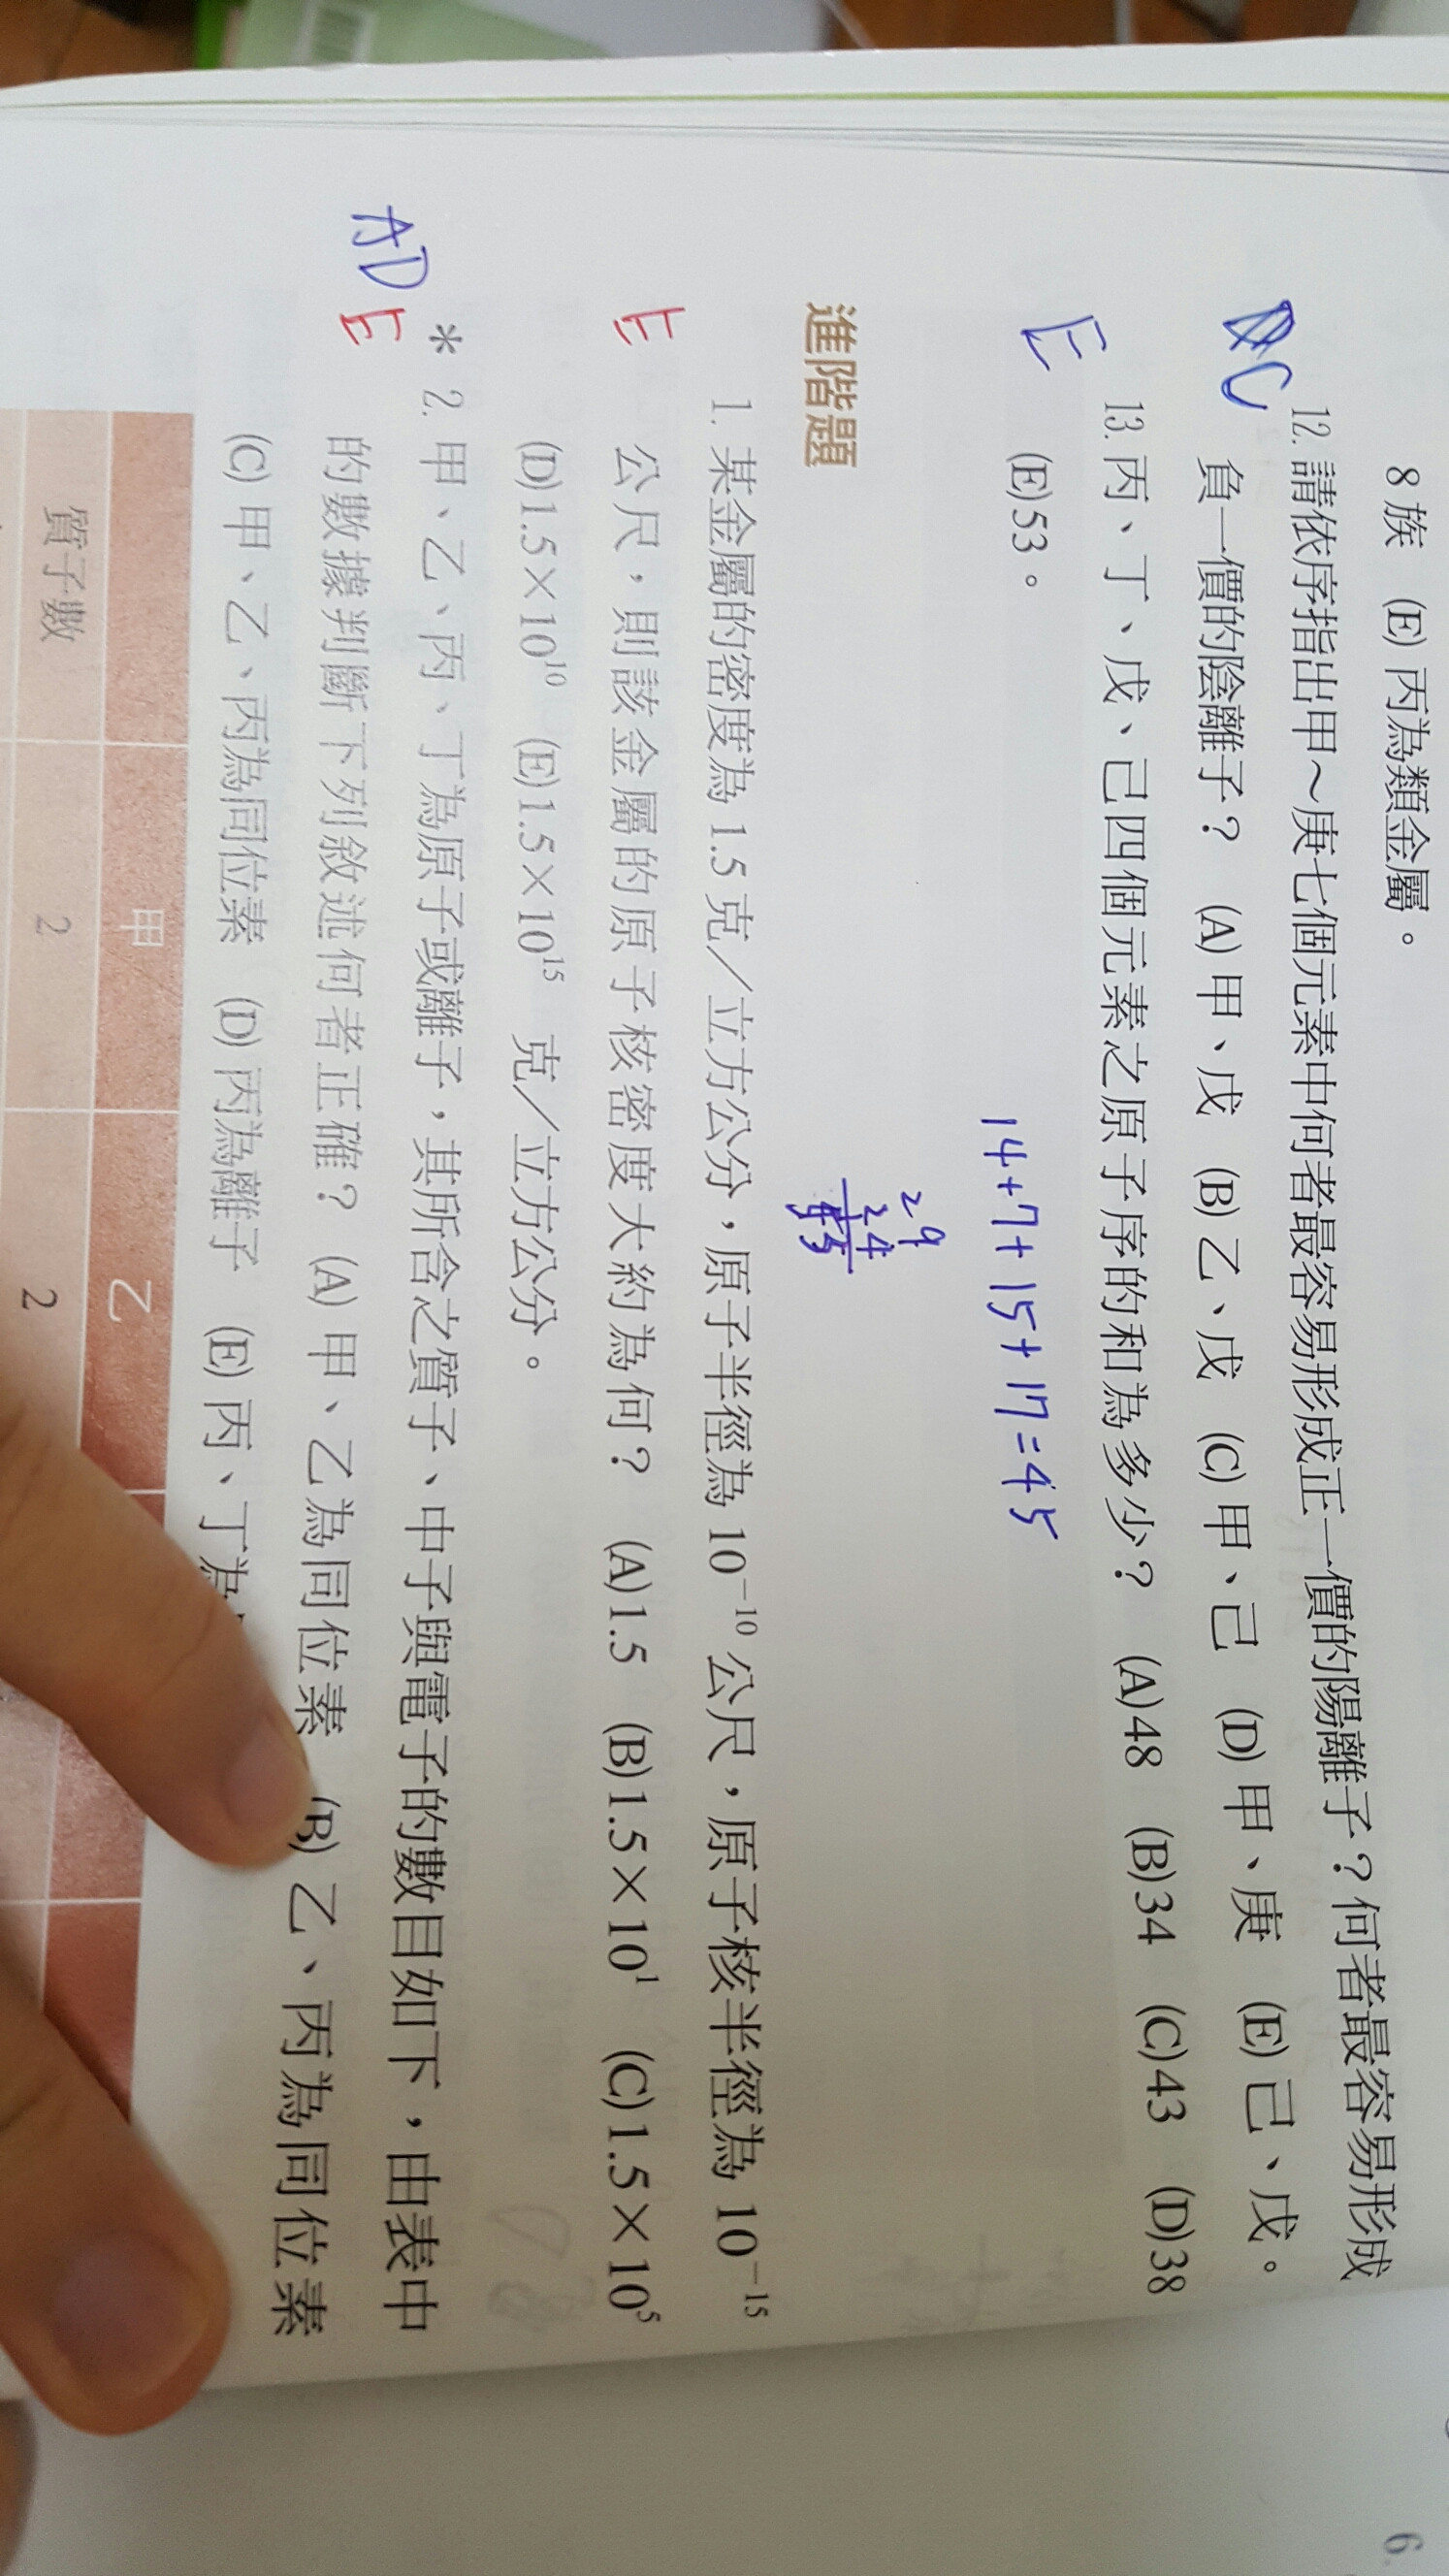 8 族 (E) 丙為類金屬。
12. 請依序指出甲～庚七個元素中何者最容易形成正一價的陽離子？何者最容易形成
負一價的陰離子？ (A) 甲、戊 (B) 乙、戊 (C) 甲、己 (D) 甲、庚 (E) 己、戊。
C
13. 丙、丁、戊、己四個元素之原子序的和為多少？ (A)48 (B)34 (C)43 (D)38
(E)53。
E
14+7+15+17=45
29
24
進階題
1. 某金屬的密度為 1.5 克／立方公分，原子半徑為 10⁻¹⁰ 公尺，原子核半徑為 10⁻¹⁵
公尺，則該金屬的原子核密度大約為何？ (A)1.5 (B)1.5×10¹ (C)1.5×10⁵
(D)1.5×10¹⁰ (E)1.5×10¹⁵ 克／立方公分。
E
* 2. 甲、乙、丙、丁為原子或離子，其所含之質子、中子與電子的數目如下，由表中
的數據判斷下列敘述何者正確？ (A) 甲、乙為同位素 (B) 乙、丙為同位素
(C) 甲、乙、丙為同位素 (D) 丙為離子 (E) 丙、丁為
AD
E
甲 乙
質子數 2 2
6.